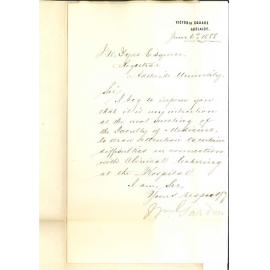 VICTORIA SQUARE
ADELAIDE.
June 6th 1888
Esquire
Registrar
Adelaide University
Sir,
I beg to inform you
that it is my intention
at the next meeting of
the Faculty of Medicine,
to draw attention to certain
difficulties in connection
with Clinical teaching
at the Hospital
I am, Sir,
Yours respectfy
Wm Gardner